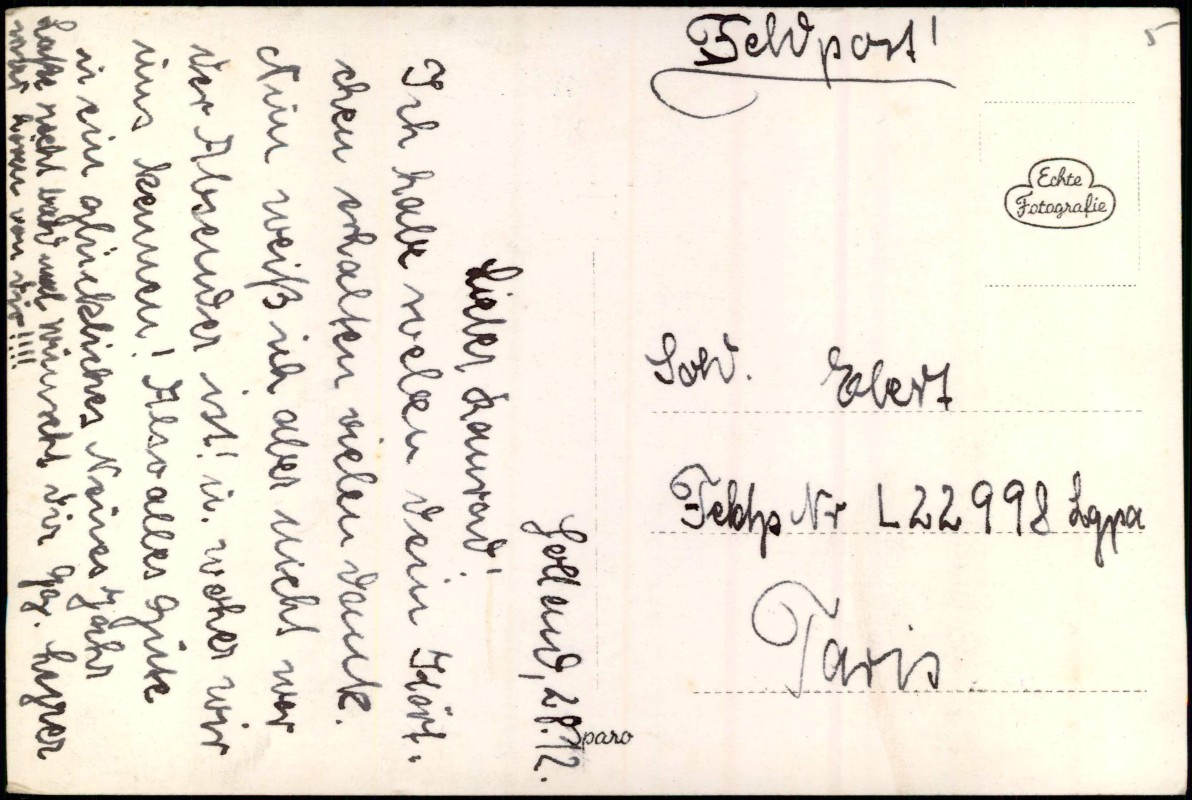 Feldpost!
Echte
Fotografie
Sold. Ebert
Feldp Nr L22998 Lgpa
Paris
Sparo
Holland, 28.12.
Lieber Konrad!
Ich habe soeben dein Kärt-
chen erhalten vielen Dank.
Nun weiß ich aber nicht wer
der Absender ist! u. woher wir
uns kennen! Also alles Gute
u ein glückliches Neues Jahr
Laße recht bald mal wünscht dir
mehr hören von dir!!!!
5